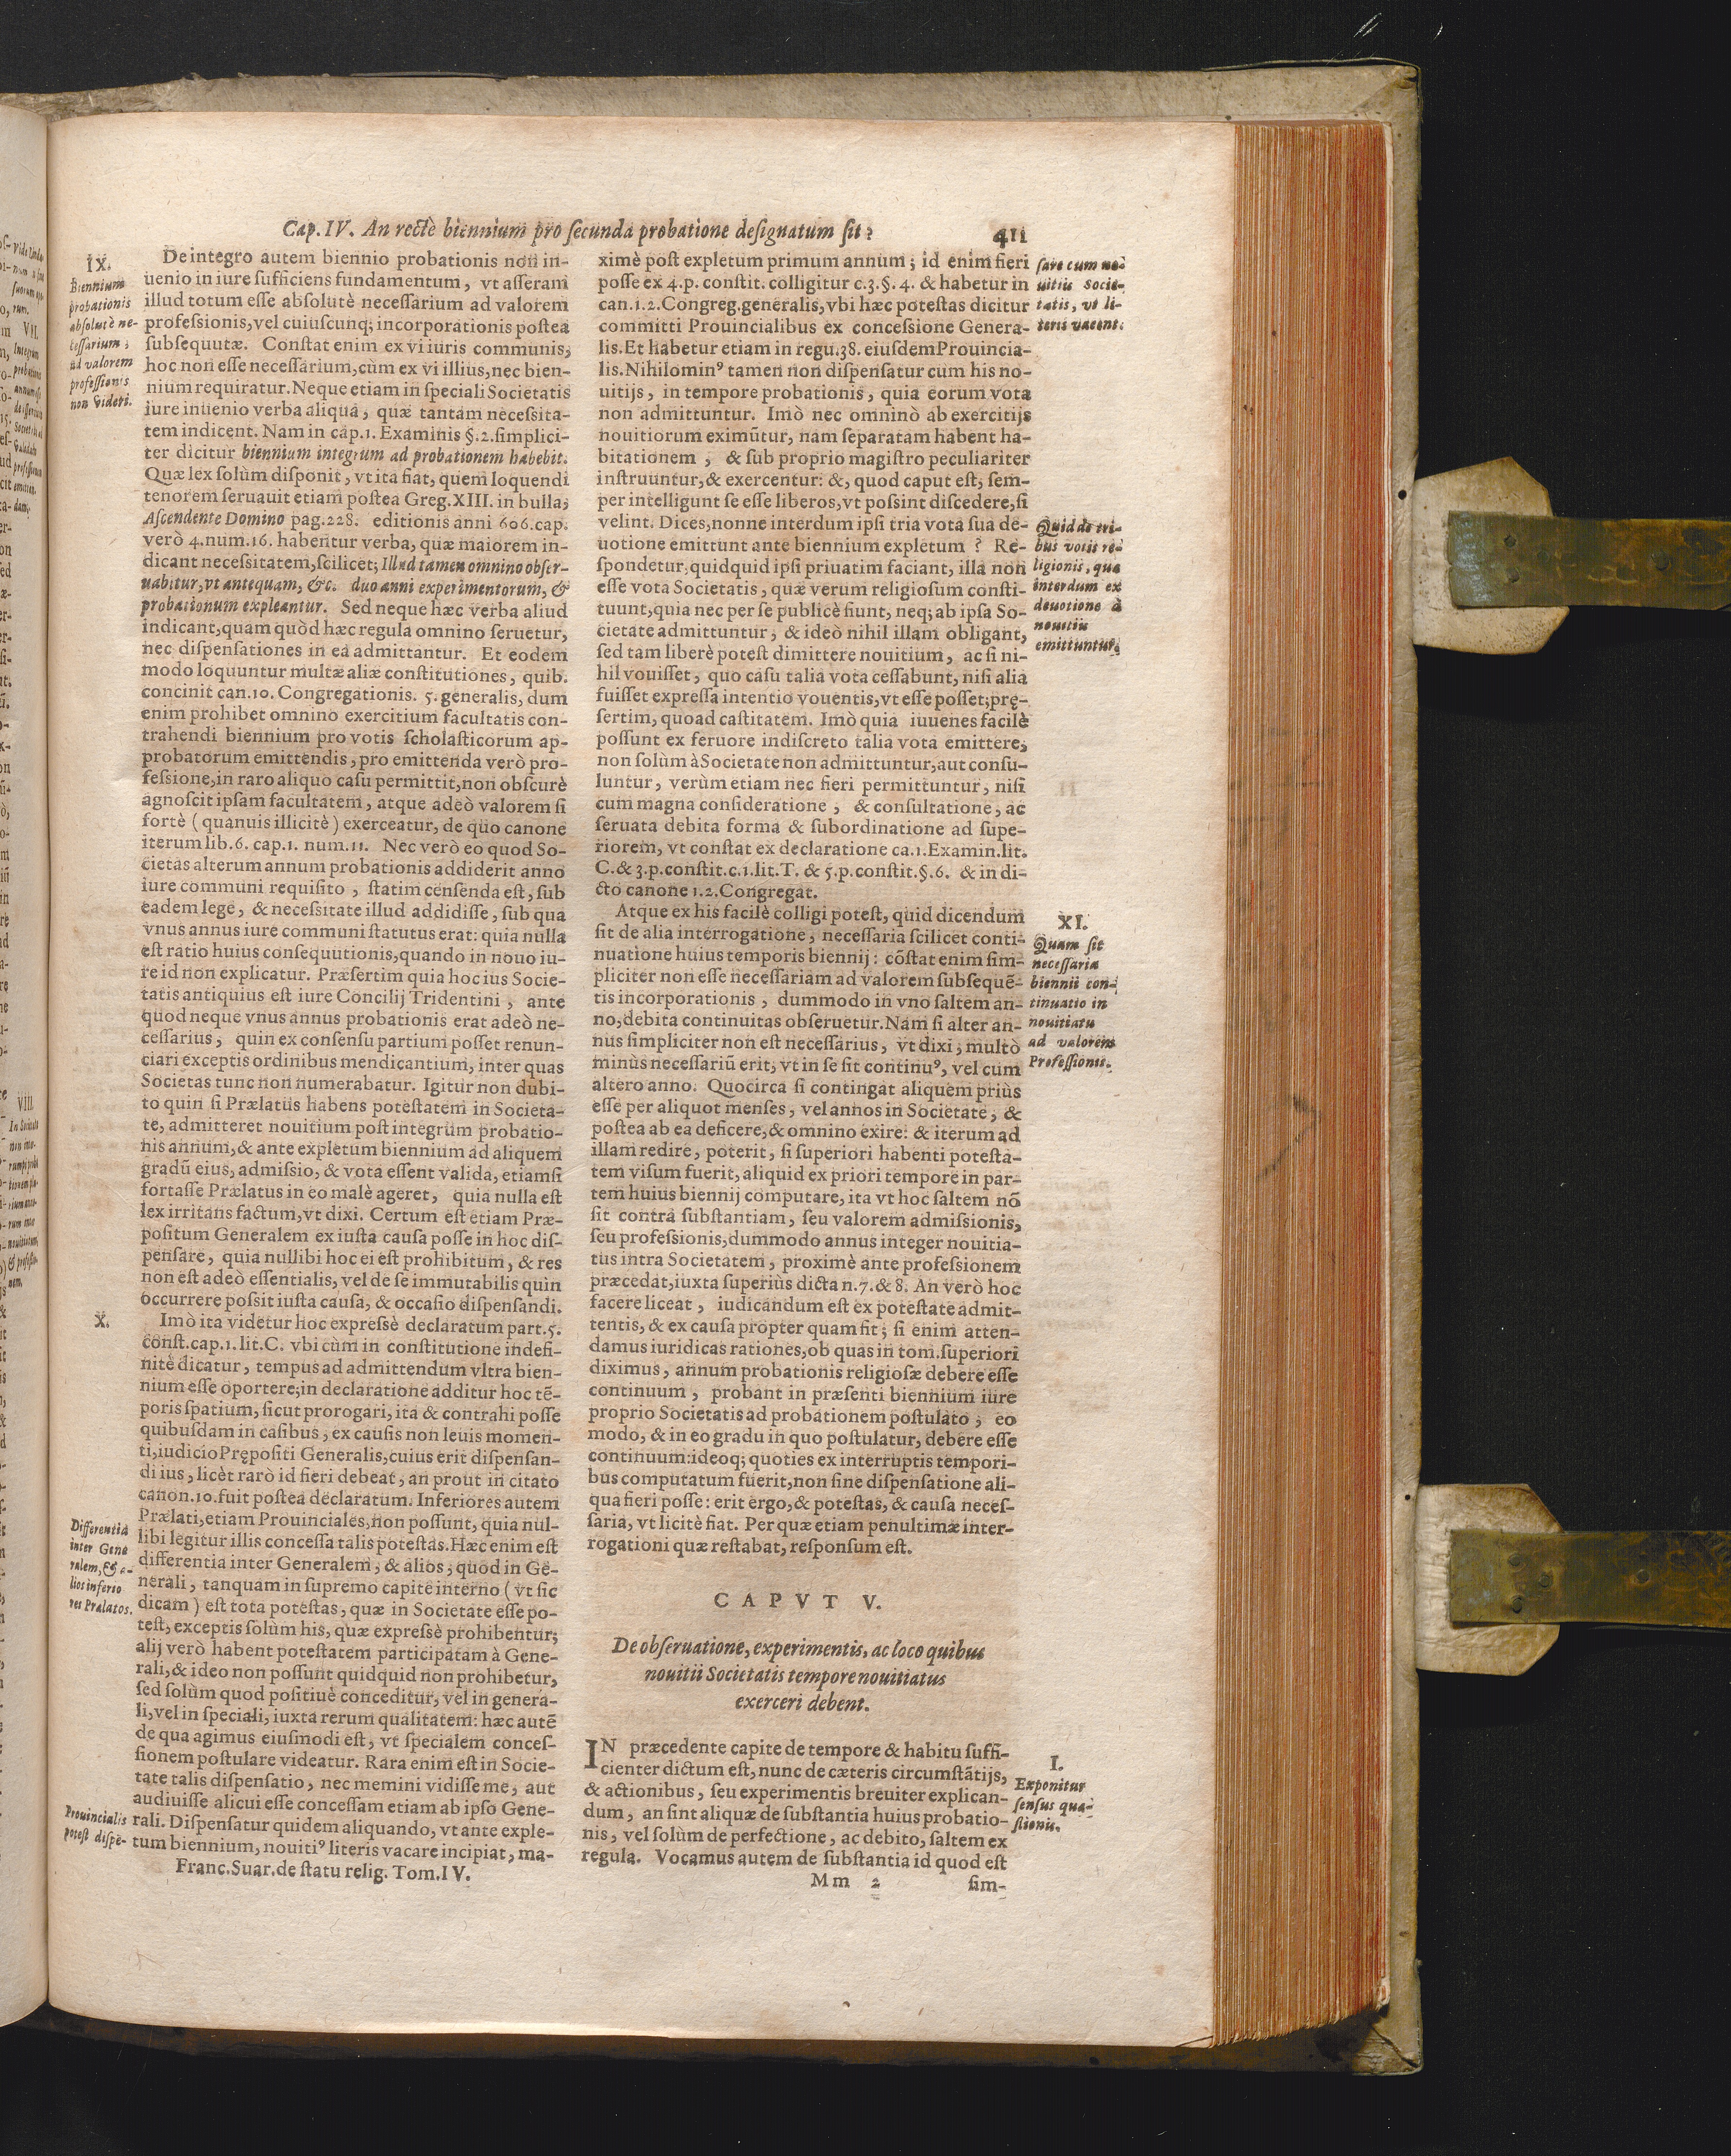 Cap. IV. An rectè biennium pro ſecunda probatione deſignatum ſit? 411
IX.
Biennium
probationis
abſolutè ne-
ceſſarium;
ad valorem
profeſſionis
non videri.
De integro autem biennio probationis non in-
uenio in iure ſufficiens fundamentum, vt aſſeram
illud totum eſſe abſolutè neceſſarium ad valorem
profeſſionis, vel cuiuſcunq; incorporationis poſtea
ſubſequutæ. Conſtat enim ex vi iuris communis,
hoc non eſſe neceſſarium, cùm ex vi illius, nec bien-
nium requiratur. Neque etiam in ſpeciali Societatis
iure inuenio verba aliqua, quæ tantam neceſsita-
tem indicent. Nam in cap. 1. Examinis §. 2. ſimplici-
ter dicitur biennium integrum ad probationem habebit.
Quæ lex ſolùm diſponit, vt ita fiat, quem loquendi
tenorem ſeruauit etiam poſtea Greg. XIII. in bulla,
Aſcendente Domino pag. 228. editionis anni 606. cap.
verò 4. num. 16. habentur verba, quæ maiorem in-
dicant neceſsitatem, ſcilicet; Illud tamen omnino obſer-
uabitur, vt antequam, &c. duo anni experimentorum, &
probationum expleantur. Sed neque hæc verba aliud
indicant, quam quòd hæc regula omnino ſeruetur,
nec diſpenſationes in ea admittantur. Et eodem
modo loquuntur multæ aliæ conſtitutiones, quib.
concinit can. 10. Congregationis. 5. generalis, dum
enim prohibet omnino exercitium facultatis con-
trahendi biennium pro votis ſcholaſticorum ap-
probatorum emittendis, pro emittenda verò pro-
feſsione, in raro aliquo caſu permittit, non obſcurè
agnoſcit ipſam facultatem, atque adeò valorem ſi
fortè (quanuis illicitè) exerceatur, de quo canone
iterum lib. 6. cap. 1. num. 11. Nec verò eo quod So-
cietas alterum annum probationis addiderit anno
iure communi requiſito, ſtatim cenſenda eſt, ſub
eadem lege, & neceſsitate illud addidiſſe, ſub qua
vnus annus iure communi ſtatutus erat: quia nulla
eſt ratio huius conſequutionis, quando in nouo iu-
re id non explicatur. Præſertim quia hoc ius Socie-
tatis antiquius eſt iure Concilij Tridentini, ante
quod neque vnus annus probationis erat adeò ne-
ceſſarius, quin ex conſenſu partium poſſet renun-
ciari exceptis ordinibus mendicantium, inter quas
Societas tunc non numerabatur. Igitur non dubi-
to quin ſi Prælatus habens poteſtatem in Societa-
te, admitteret nouitium poſt integrum probatio-
nis annum, & ante expletum biennium ad aliquem
gradũ eius, admiſsio, & vota eſſent valida, etiamſi
fortaſſe Prælatus in eo malè ageret, quia nulla eſt
lex irritans factum, vt dixi. Certum eſt etiam Præ-
poſitum Generalem ex iuſta cauſa poſſe in hoc diſ-
penſare, quia nullibi hoc ei eſt prohibitum, & res
non eſt adeò eſſentialis, vel de ſe immutabilis quin
occurrere poſsit iuſta cauſa, & occaſio diſpenſandi.
X.
Imò ita videtur hoc expreſsè declaratum part. 5.
conſt. cap. 1. lit. C. vbi cùm in conſtitutione indefi-
nitè dicatur, tempus ad admittendum vltra bien-
nium eſſe oportere; in declaratione additur hoc tẽ-
poris ſpatium, ſicut prorogari, ita & contrahi poſſe
quibuſdam in caſibus, ex cauſis non leuis momen-
ti, iudicio Prępoſiti Generalis, cuius erit diſpenſan-
di ius, licèt rarò id fieri debeat, an prout in citato
canon. 10. fuit poſtea declaratum. Inferiores autem
Prælati, etiam Prouinciales, non poſſunt, quia nul-
libi legitur illis conceſſa talis poteſtas. Hæc enim eſt
differentia inter Generalem, & alios, quod in Ge-
nerali, tanquam in ſupremo capite interno (vt ſic
dicam) eſt tota poteſtas, quæ in Societate eſſe po-
teſt, exceptis ſolùm his, quæ expreſsè prohibentur;
alij verò habent poteſtatem participatam à Gene-
rali, & ideo non poſſunt quidquid non prohibetur,
ſed ſolùm quod poſitiuè conceditur, vel in genera-
li, vel in ſpeciali, iuxta rerum qualitatem: hæc autẽ
de qua agimus eiuſmodi eſt, vt ſpecialem conceſ-
ſionem poſtulare videatur. Rara enim eſt in Socie-
tate talis diſpenſatio, nec memini vidiſſe me, aut
audiuiſſe alicui eſſe conceſſam etiam ab ipſo Gene-
rali. Diſpenſatur quidem aliquando, vt ante exple-
tum biennium, nouitiꝰ literis vacare incipiat, ma-
Differentia
inter Gene
ralem, & a-
lios inferio
res Prælatos.
Prouincialis
poteſt diſpẽ-
Franc. Suar. de ſtatu relig. Tom. IV.
ximè poſt expletum primum annum; id enim fieri
poſſe ex 4. p. conſtit. colligitur c. 3. §. 4. & habetur in
can. 1. 2. Congreg. generalis, vbi hæc poteſtas dicitur
committi Prouincialibus ex conceſsione Genera-
lis. Et habetur etiam in regu. 38. eiuſdem Prouincia-
lis. Nihilominꝰ tamen non diſpenſatur cum his no-
uitijs, in tempore probationis, quia eorum vota
non admittuntur. Imò nec omninò ab exercitijs
nouitiorum eximũtur, nam ſeparatam habent ha-
bitationem, & ſub proprio magiſtro peculiariter
inſtruuntur, & exercentur: &, quod caput eſt, ſem-
per intelligunt ſe eſſe liberos, vt poſsint diſcedere, ſi
velint. Dices, nonne interdum ipſi tria vota ſua de-
uotione emittunt ante biennium expletum? Re-
ſpondetur, quidquid ipſi priuatim faciant, illa non
eſſe vota Societatis, quæ verum religioſum conſti-
tuunt, quia nec per ſe publicè fiunt, neq; ab ipſa So-
cietate admittuntur, & ideò nihil illam obligant,
ſed tam liberè poteſt dimittere nouitium, ac ſi ni-
hil vouiſſet, quo caſu talia vota ceſſabunt, niſi alia
fuiſſet expreſſa intentio vouentis, vt eſſe poſſet; prę-
ſertim, quoad caſtitatem. Imò quia iuuenes facilè
poſſunt ex feruore indiſcreto talia vota emittere,
non ſolùm à Societate non admittuntur, aut conſu-
luntur, verùm etiam nec fieri permittuntur, niſi
cum magna conſideratione, & conſultatione, ac
ſeruata debita forma & ſubordinatione ad ſupe-
riorem, vt conſtat ex declaratione ca. 1. Examin. lit.
C. & 3. p. conſtit. c. 1. lit. T. & 5. p. conſtit. §. 6. & in di-
cto canone 1. 2. Congregat.
ſare cum no-
uitiis Socie-
tatis, vt li-
teris vacent.
Quid de tri-
bus votis re-
ligionis, quæ
interdum ex
deuotione à
nouitiis
emittuntur.
Atque ex his facilè colligi poteſt, quid dicendum
ſit de alia interrogatione, neceſſaria ſcilicet conti-
nuatione huius temporis biennij: cõſtat enim ſim-
pliciter non eſſe neceſſariam ad valorem ſubſequẽ-
tis incorporationis, dummodo in vno ſaltem an-
no, debita continuitas obſeruetur. Nam ſi alter an-
nus ſimpliciter non eſt neceſſarius, vt dixi, multò
minùs neceſſariũ erit, vt in ſe ſit continuꝰ, vel cum
altero anno. Quocirca ſi contingat aliquem priùs
eſſe per aliquot menſes, vel annos in Societate, &
poſtea ab ea deficere, & omnino exire: & iterum ad
illam redire, poterit, ſi ſuperiori habenti poteſta-
tem viſum fuerit, aliquid ex priori tempore in par-
tem huius biennij computare, ita vt hoc ſaltem nõ
ſit contra ſubſtantiam, ſeu valorem admiſsionis,
ſeu profeſsionis, dummodo annus integer nouitia-
tus intra Societatem, proximè ante profeſsionem
præcedat, iuxta ſuperiùs dicta n. 7. & 8. An verò hoc
facere liceat, iudicandum eſt ex poteſtate admit-
tentis, & ex cauſa propter quam fit; ſi enim atten-
damus iuridicas rationes, ob quas in tom. ſuperiori
diximus, annum probationis religioſæ debere eſſe
continuum, probant in præſenti biennium iure
proprio Societatis ad probationem poſtulato, eo
modo, & in eo gradu in quo poſtulatur, debere eſſe
continuum: ideoq; quoties ex interruptis tempori-
bus computatum fuerit, non ſine diſpenſatione ali-
qua fieri poſſe: erit ergo, & poteſtas, & cauſa neceſ-
ſaria, vt licitè fiat. Per quæ etiam penultimæ inter-
rogationi quæ reſtabat, reſponſum eſt.
XI.
Quam ſit
neceſſaria
biennii con-
tinuatio in
nouitiatu
ad valorem
Profeſſionis.
CAPVT V.
De obſeruatione, experimentis, ac loco quibus
nouitii Societatis tempore nouitiatus
exerceri debent.
IN præcedente capite de tempore & habitu ſuffi-
cienter dictum eſt, nunc de cæteris circumſtãtijs,
& actionibus, ſeu experimentis breuiter explican-
dum, an ſint aliquæ de ſubſtantia huius probatio-
nis, vel ſolùm de perfectione, ac debito, ſaltem ex
regula. Vocamus autem de ſubſtantia id quod eſt
I.
Exponitur
ſenſus quæ-
ſtionis.
Mm 2 ſim-